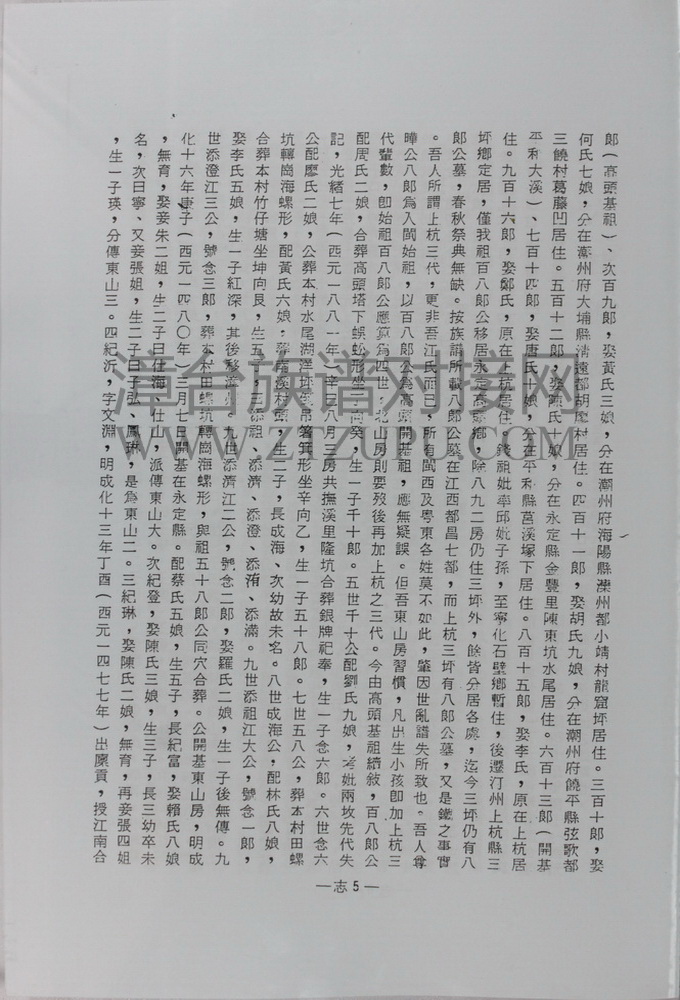 郎(高頭基祖)、次百九郎，娶黃氏三娘，分在潮州府海陽縣灤州都小靖村龍窟坪居住。三百十郎，娶
何氏七娘，分在潮州府大埔縣清遠都胡寮村居住。四百十一郎，娶胡氏九娘，分在潮州府饒平縣弦歌都
三饒村葛藤凹居住。五百十二郎，娶陳氏十娘，分在永定縣金豐里陳東坑水尾居住。六百十三郎(開基
平和大溪)、七百十四郎，娶唐氏十娘，分在平和縣葛溪塚下居住。八百十五郎，娶李氏，原在上杭居
住。九百十六郎，娶鄭氏，原在上杭居住。錢祖妣率邱妣子孫，至寧化石壁鄉暫住，後遷汀州上杭縣三
坪鄉定居，僅我祖百八郎公移居永定高頭鄉，除八九二房仍住三坪外，餘皆分居各處，迄今三坪仍有八
郎公墓，春秋祭典無缺。按族譜所載八郎公墓在江西都昌七都，而上杭三坪有八郎公墓，又是鐵之事實
。吾人所謂上杭三代，更非吾江氏而已，所有閩西及粵東各姓莫不如此，肇因世亂譜失所致也。吾人尊
曄公八郎為入閩始祖，以百八郎公為高頭開基祖，應無疑誤。但吾東山房習慣，凡出生小孩即加上杭三
代輩數，即始祖百八郎公應算為四世。北山房則要歿後再加上杭之三代。今由高頭基祖續敘，百八郎公
配周氏二娘，合葬高頭塔下蜈蚣形坐丁向癸，生一子千十郎。五世千十公配劉氏九娘，考妣兩坟先代失
記，光緒七年(西元一八八一年)辛巳八月三房共撫溪里隆坑合葬銀牌祀奉，生一子念六郎。六世念六
公配廖氏二娘，公葬本村水尾湖洋坪燈吊箸箕形坐辛向乙，生一子五十八郎。七世五八公，葬本村田螺
坑轉崗海螺形，配黃氏六娘，葬南溪村頭，生二子，長成海、次幼故未名。八世成海公，配林氏八娘，
合葬本村竹仔塘坐坤向艮，生五子，三添祖、添濟、添澄、添洧、添滿。九世添祖江大公，號念一郎，
娶李氏五娘，生一子紅深，其後移漳州。九世添濟江二公，號念二郎，娶羅氏二娘，生一子後無傳。九
世添澄江三公，號念三郎，葬本村田螺坑轉崗海螺形，與祖五十八郎公同穴合葬。公開基東山房，明成
化十六年庚子(西元一四八〇年)三月七日開基在永定縣。配蔡氏五娘，生五子，長紀富，娶賴氏八娘
，無育，娶妾朱二姐，生二子曰仕海、仕山，派傳東山大。次紀登，娶陳氏三娘，生三子，長三幼卒未
名，次曰寧、又妾張姐，生二子曰子弘、鳳琳，是為東山二。三紀琳，娶陳氏二娘，無育，再妾張四姐
，生一子瑛，分傳東山三。四紀沂，字文淵，明成化十三年丁酉(西元一四七七年)出廩貢，授江南合
—志5—
漳台族谱对接网
WWW.ZTZUPU.COM